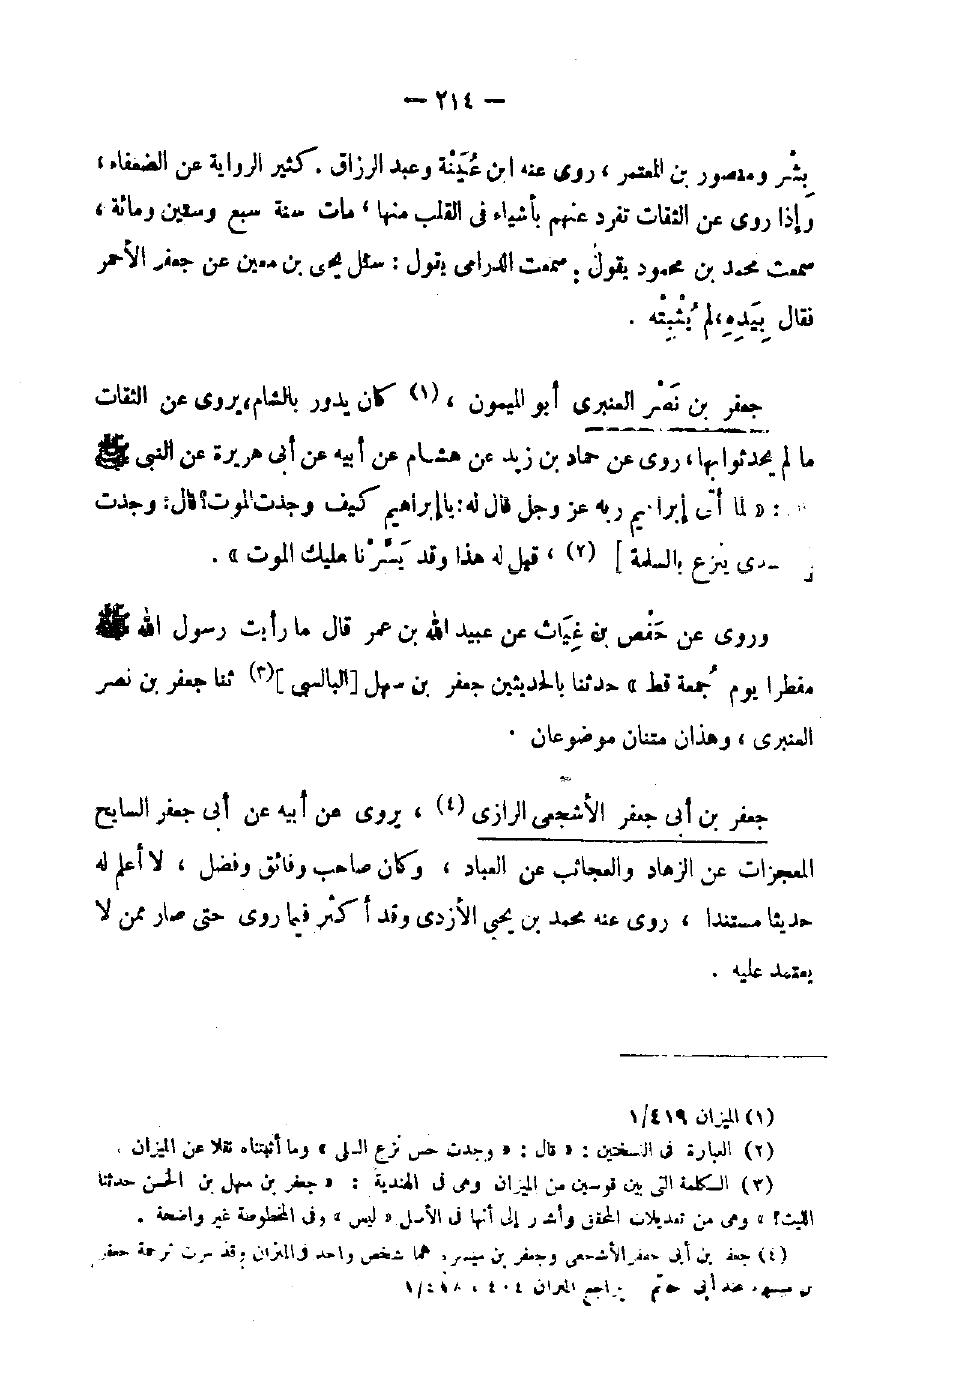 — ٢١٤ —
بِشْر ومنصور بن المعتمر ، روى عنه ابن عُيَيْنَة وعبد الرزاق . كثير الرواية عن الضعفاء ،
وإذا روى عن الثقات تفرد عنهم بأشياء فى القلب منها ، مات سنة سبع وستين ومائة ،
سمعت محمد بن محمود يقول : سمعت الدرامى يقول : سئل يحيى بن معين عن جعفر الأحمر
فقال بِيَدِهِ ، لم يُثْبِتْه .
جعفر بن نَصْر العنبرى أبو الميمون ، (١) كان يدور بالشام ، يروى عن الثقات
ما لم يحدثوا بها ، روى عن حماد بن زيد عن هشام عن أبيه عن أبى هريرة عن النبى ﷺ
: « لما أتى إبراهيم ربه عز وجل قال له : يا إبراهيم كيف وجدت الموت ؟ قال : وجدت
ينزع بالسلة ] (٢) ، قيل له هذا وقد يَسَّرْنا عليك الموت » .
وروى عن حَفْص بن غِيَاث عن عبيد الله بن عمر قال ما رأيت رسول الله ﷺ
مفطرا يوم جُمعة قط » حدثنا بالحديثين جعفر بن سهل [ البالسى ] (٣) ثنا جعفر بن نصر
العنبرى ، وهذان متنان موضوعان .
جعفر بن أبى جعفر الأشجعى الرازى (٤) ، يروى عن أبيه عن أبى جعفر السايح
المعجزات عن الزهاد والعجائب عن العباد ، وكان صاحب وقائق وفضل ، لا أعلم له
حديثا مستندا ، روى عنه محمد بن يحيى الأزدى وقد أكثر فيما روى حتى صار ممن لا
يعتمد عليه .
(١) الميزان ١/٤١٩
(٢) العبارة فى النسختين : « قال : « وجدت حس نزع السلى » وما أثبتناه نقلا عن الميزان .
(٣) الكلمة التى بين قوسين من الميزان وهى فى الهندية : « جعفر بن سهل بن الحسن حدثنا
الليث ؟ » وهى من تعديلات المحقق وأشار إلى أنها فى الأصل « ليس » وفى المخطوطة غير واضحة .
(٤) جعفر بن أبى جعفر الأشجعى وجعفر بن ميسرة هما شخص واحد فى الميزان وقد مرت ترجمة جعفر
بن ميسرة عند أبى حاتم يراجع الميزان ٤٠٤ ،